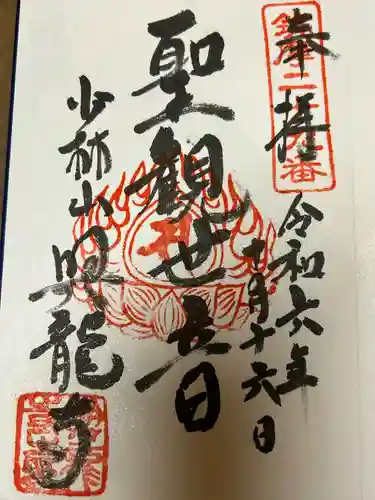 奉拝
令和六年
十月十六日
聖観世音
少林山 興龍寺